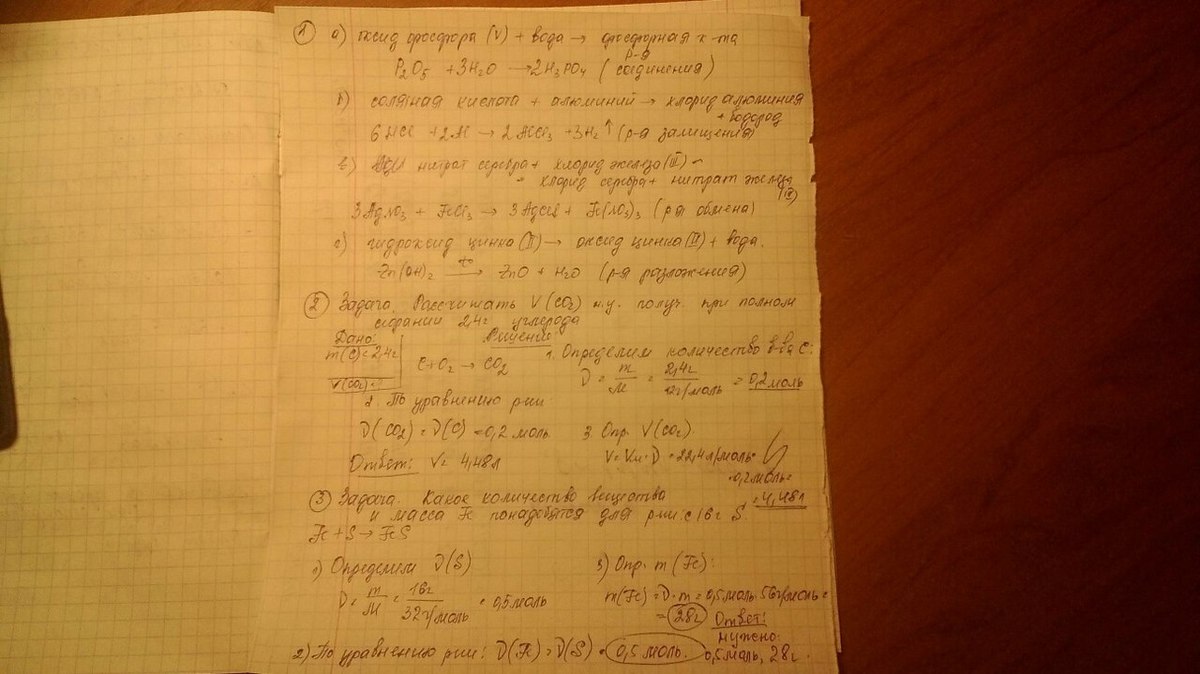 1 а) оксид фосфора (V) + вода → фосфорная к-та
P₂O₅ + 3H₂O → 2H₃PO₄ (р-я соединения)
б) соляная кислота + алюминий → хлорид алюминия
+ водород
6HCl + 2Al → 2AlCl₃ + 3H₂↑ (р-я замещения)
в) нитрат серебра + хлорид железа (III) –
= хлорид серебра + нитрат железа
(III)
3AgNO₃ + FeCl₃ → 3AgCl + Fe(NO₃)₃ (р-я обмена)
г) гидроксид цинка (II) → оксид цинка (II) + вода.
Zn(OH)₂ t° → ZnO + H₂O (р-я разложения)
2 Задача. Рассчитать V(CO₂) н.у. получ. при полном
сгорании 2,4г углерода
Дано:
m(C) = 2,4г
V(CO₂) - ?
Решение:
C + O₂ → CO₂
1. Определим количество в-ва C:
ν = m/M = 2,4г / 12г/моль = 0,2 моль
2. По уравнению р-ии
ν(CO₂) = ν(C) = 0,2 моль
3. Опр. V(CO₂)
V = Vм · ν = 22,4 л/моль ·
· 0,2 моль =
= 4,48л
Ответ: V = 4,48 л
3 Задача. Какое количество вещества
и масса Fe понадобятся для р-ии с 16г S.
Fe + S → FeS
1) Определим ν(S)
ν = m/M = 16г / 32г/моль = 0,5 моль
2) По уравнению р-ии: ν(Fe) = ν(S) = 0,5 моль.
3) Опр. m(Fe):
m(Fe) = ν · m = 0,5 моль · 56г/моль =
= 28г
Ответ:
нужно:
0,5 моль, 28г.